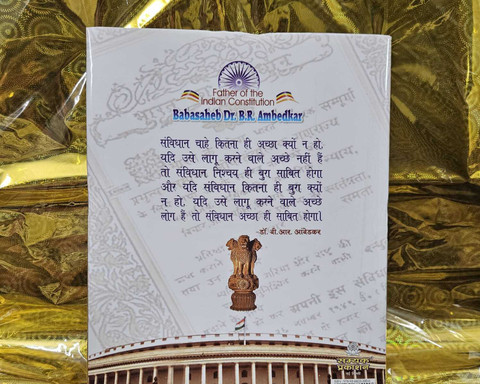 Father of the
Indian Constitution
Babasaheb Dr. B.R. Ambedkar
संविधान चाहे कितना ही अच्छा क्यों न हो,
यदि उसे लागू करने वाले अच्छे नहीं हैं
तो संविधान निश्चय ही बुरा साबित होगा
और यदि संविधान कितना ही बुरा क्यों
न हो, यदि उसे लागू करने वाले अच्छे
लोग हैं तो संविधान अच्छा ही साबित होगा।
-डॉ. बी.आर. अंबेडकर
सम्यक
प्रकाशन